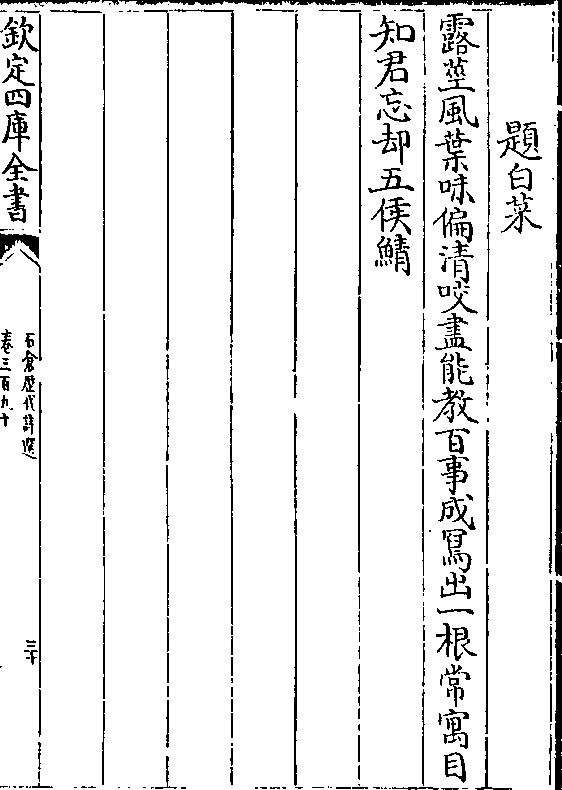 題白菜
露莖風葉味偏清咬盡能教百事成冩出一根常寓目
知君忘却五侯鯖
欽定四庫全書
石倉歴代詩選
卷三百九十
三十